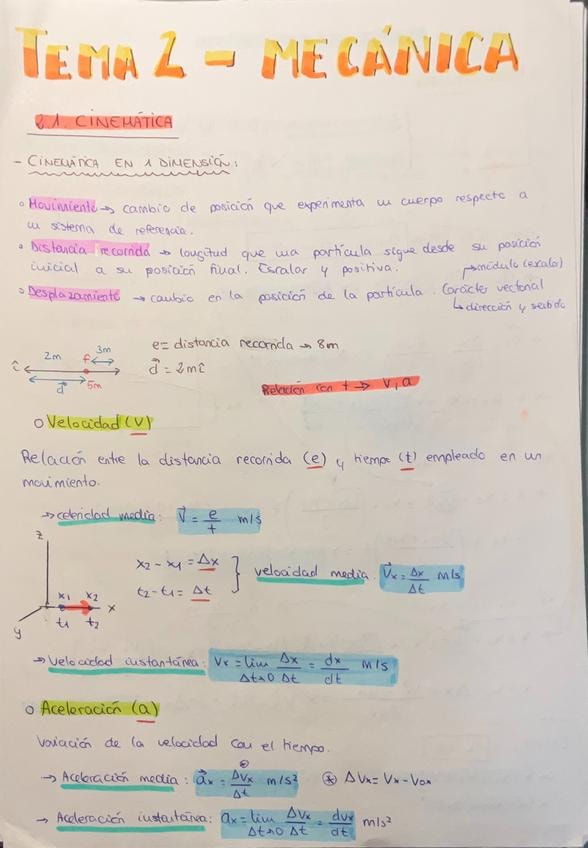 TEMA 2 - MECÁNICA
2.1. CINEMÁTICA
- CINEMÁTICA EN 1 DIMENSIÓN:
◦ Movimiento → cambio de posición que experimenta un cuerpo respecto a
un sistema de referencia.
◦ Distancia recorrida → longitud que una partícula sigue desde su posición
inicial a su posición final. Escalar y positiva.
→ módulo (escalar)
◦ Desplazamiento → cambio en la posición de la partícula. Carácter vectorial
↳ dirección y sentido
2m f 3m
î d⃗ 5m
e = distancia recorrida → 8m
d⃗ = 2m î
Relación con t → v, a
○ Velocidad (v)
Relación entre la distancia recorrida (e) y tiempo (t) empleado en un
movimiento.
→ celeridad media: v⃗ = e/t m/s
z
x₁ x₂ x
t₁ t₂
y
x₂ - x₁ = Δx
t₂ - t₁ = Δt
} velocidad media: v⃗ₓ = Δx/Δt m/s
→ Velocidad instantánea: Vx = lim Δt→0 Δx/Δt = dx/dt m/s
○ Aceleración (a)
Variación de la velocidad con el tiempo.
→ Aceleración media: a⃗ₓ = ΔVx/Δt m/s² ⊛ ΔVx = Vx - V₀x
→ Aceleración instantánea: ax = lim Δt→0 ΔVx/Δt = dvx/dt m/s²